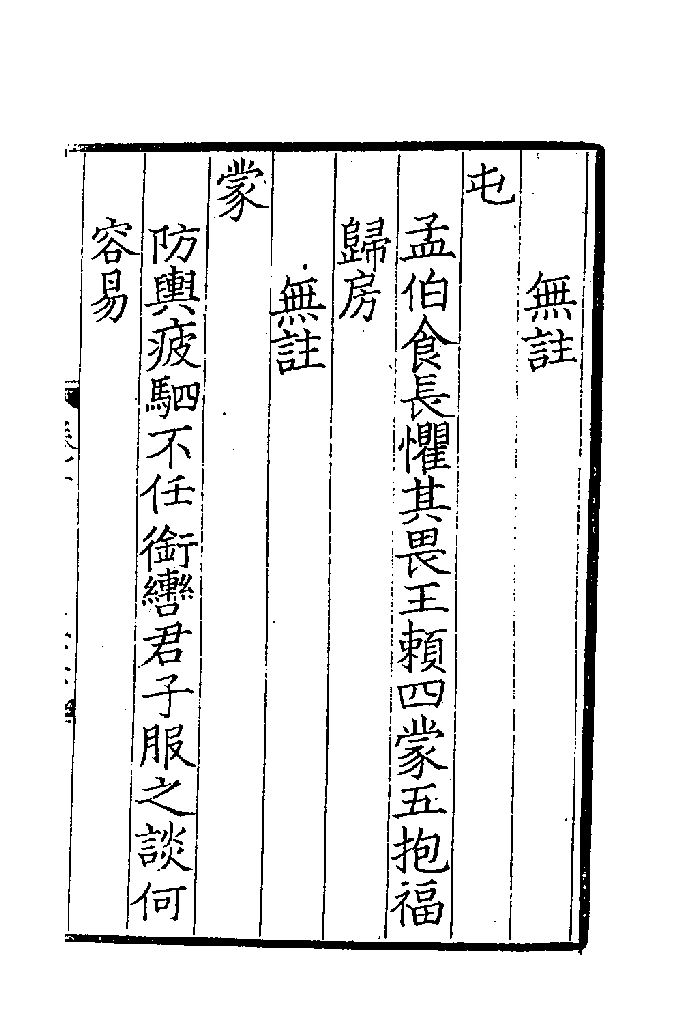 無註
屯
孟伯食長懼其畏王賴四蒙五抱福
歸房
無註
蒙
防輿疲駟不任銜轡君子服之談何
容易